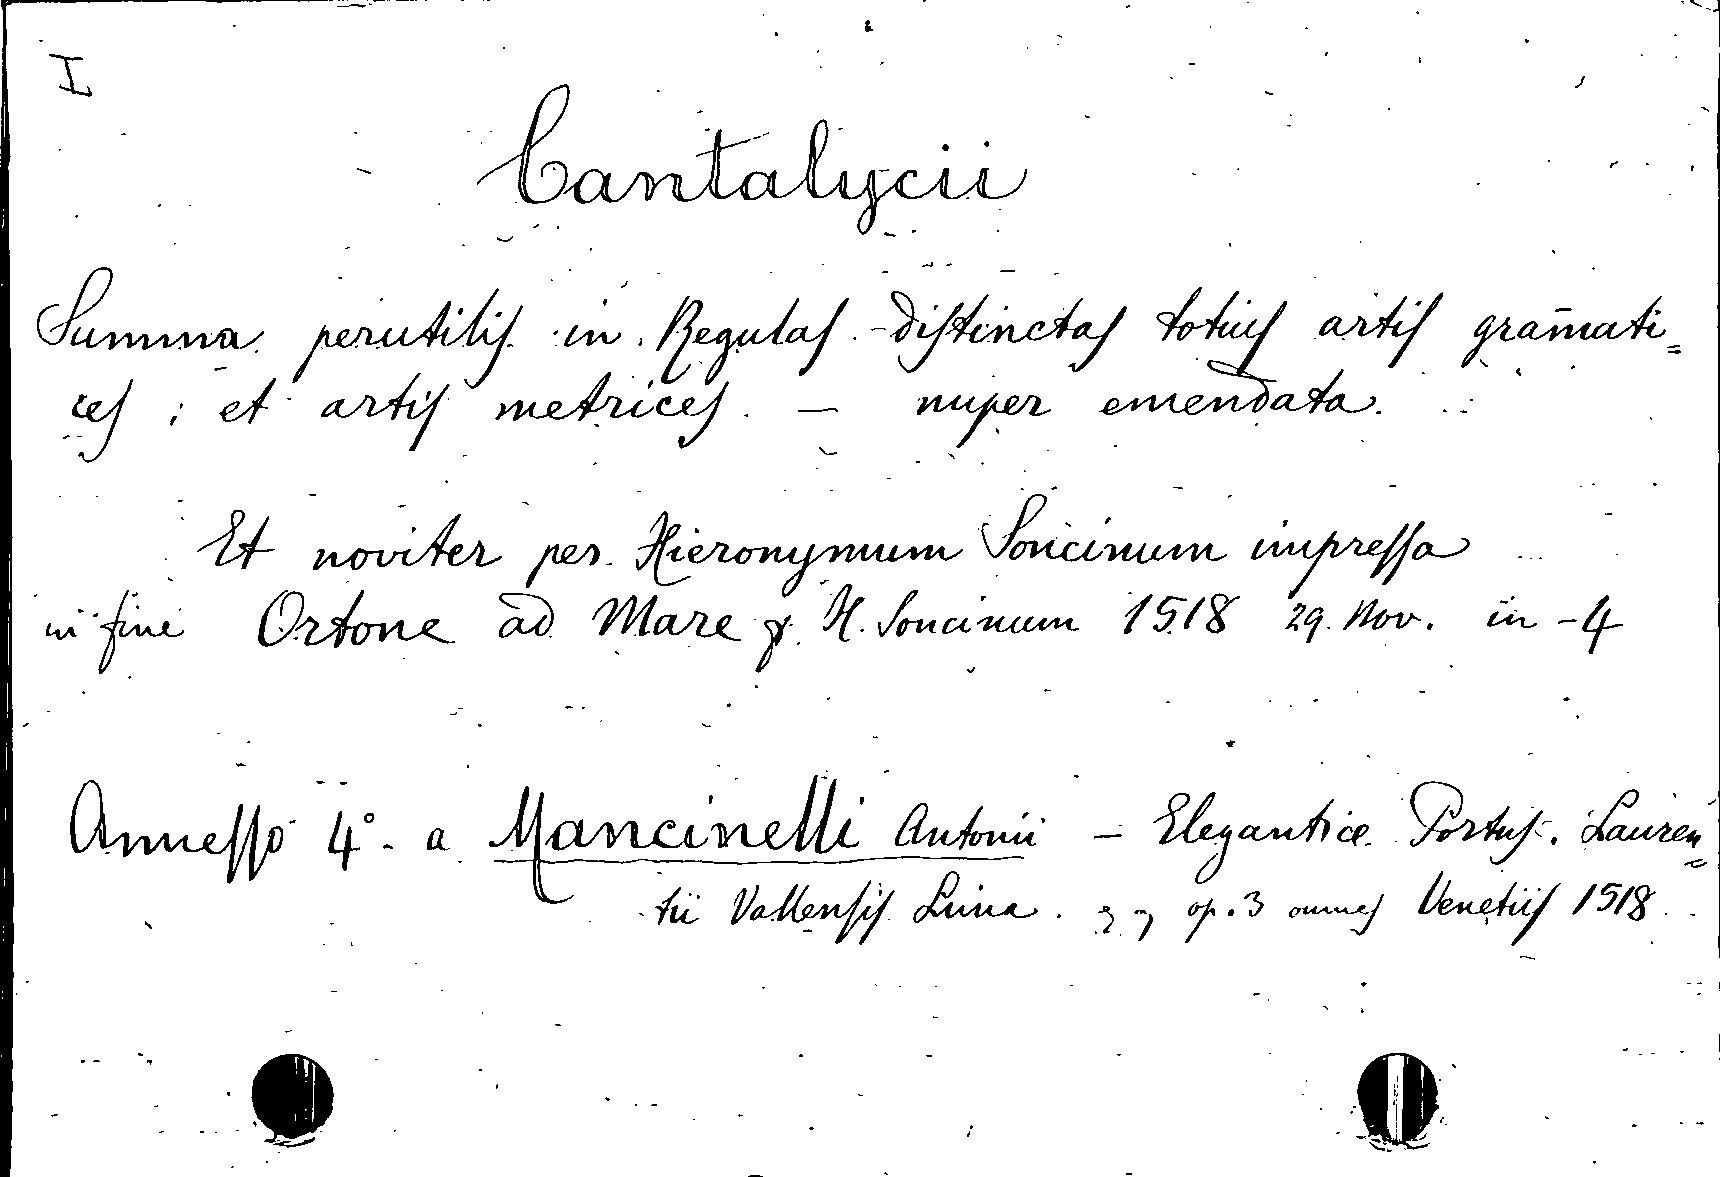 I
Cantalycii
Summa perutilis in Regulas distinctas totius artis gram̄ati=
ces ; et artis metrices. — nuper emendata.
Et noviter per Hieronymum Soncinum impressa
in fine Ortone ad Mare p. H. Soncinum 1518 29. Nov. in-4
Annesso 4° a Mancinelli Antonii — Elegantice Portus. Lauren=
tii Vallensis Lima. op. 3 omnes Venetiis 1518